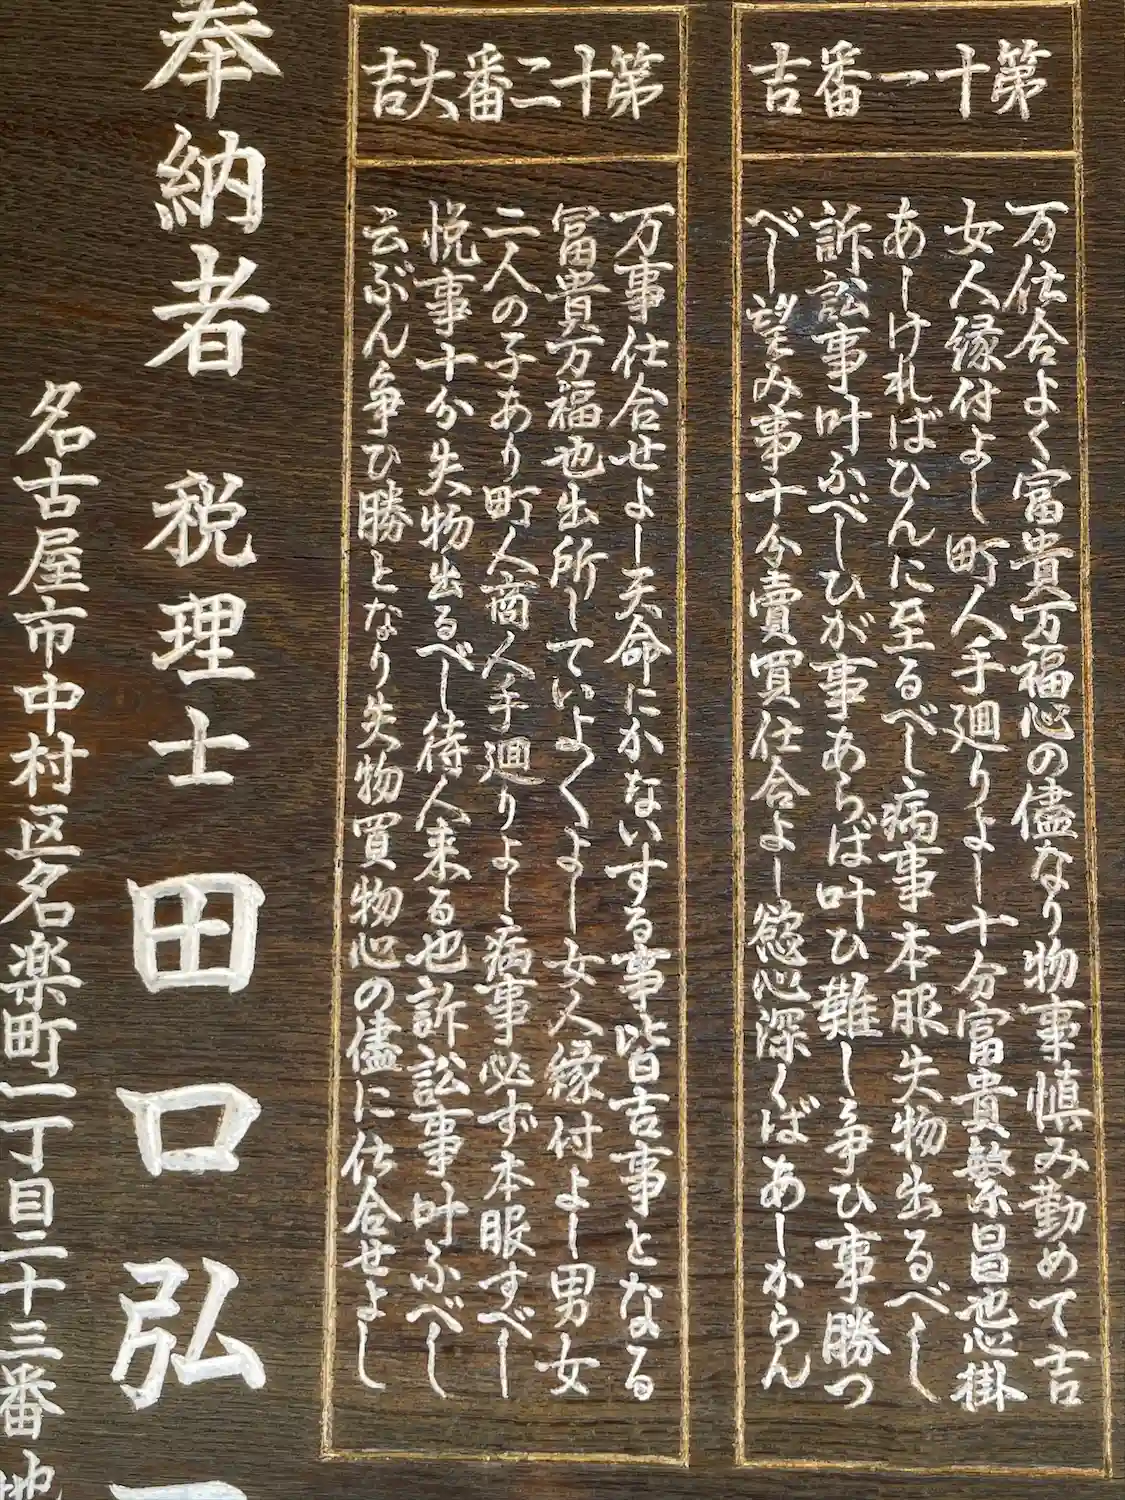 第十一番吉
万仕合よく富貴万福心の儘なり物事慎み勤めて吉
女人縁付よし町人手廻りよし十分富貴繁昌也心掛
あしければひんに至るべし病事本服失物出るべし
訴訟事叶ふべしひが事あらば叶ひ難し争ひ事勝つ
べし望み事十分賣買仕合よし慾心深くばあしからん
第十二番大吉
万事仕合せよし天命にかないする事皆吉事となる
冨貴万福也出所していよ〱よし女人縁付よし男女
二人の子あり町人商人手廻りよし病事必ず本服すべし
悦事十分失物出るべし待人来る也訴訟事叶ふべし
云ぶん争ひ勝となり失物買物心の儘に仕合せよし
奉納者 税理士 田口弘
名古屋市中村区名楽町一丁目二十三番地